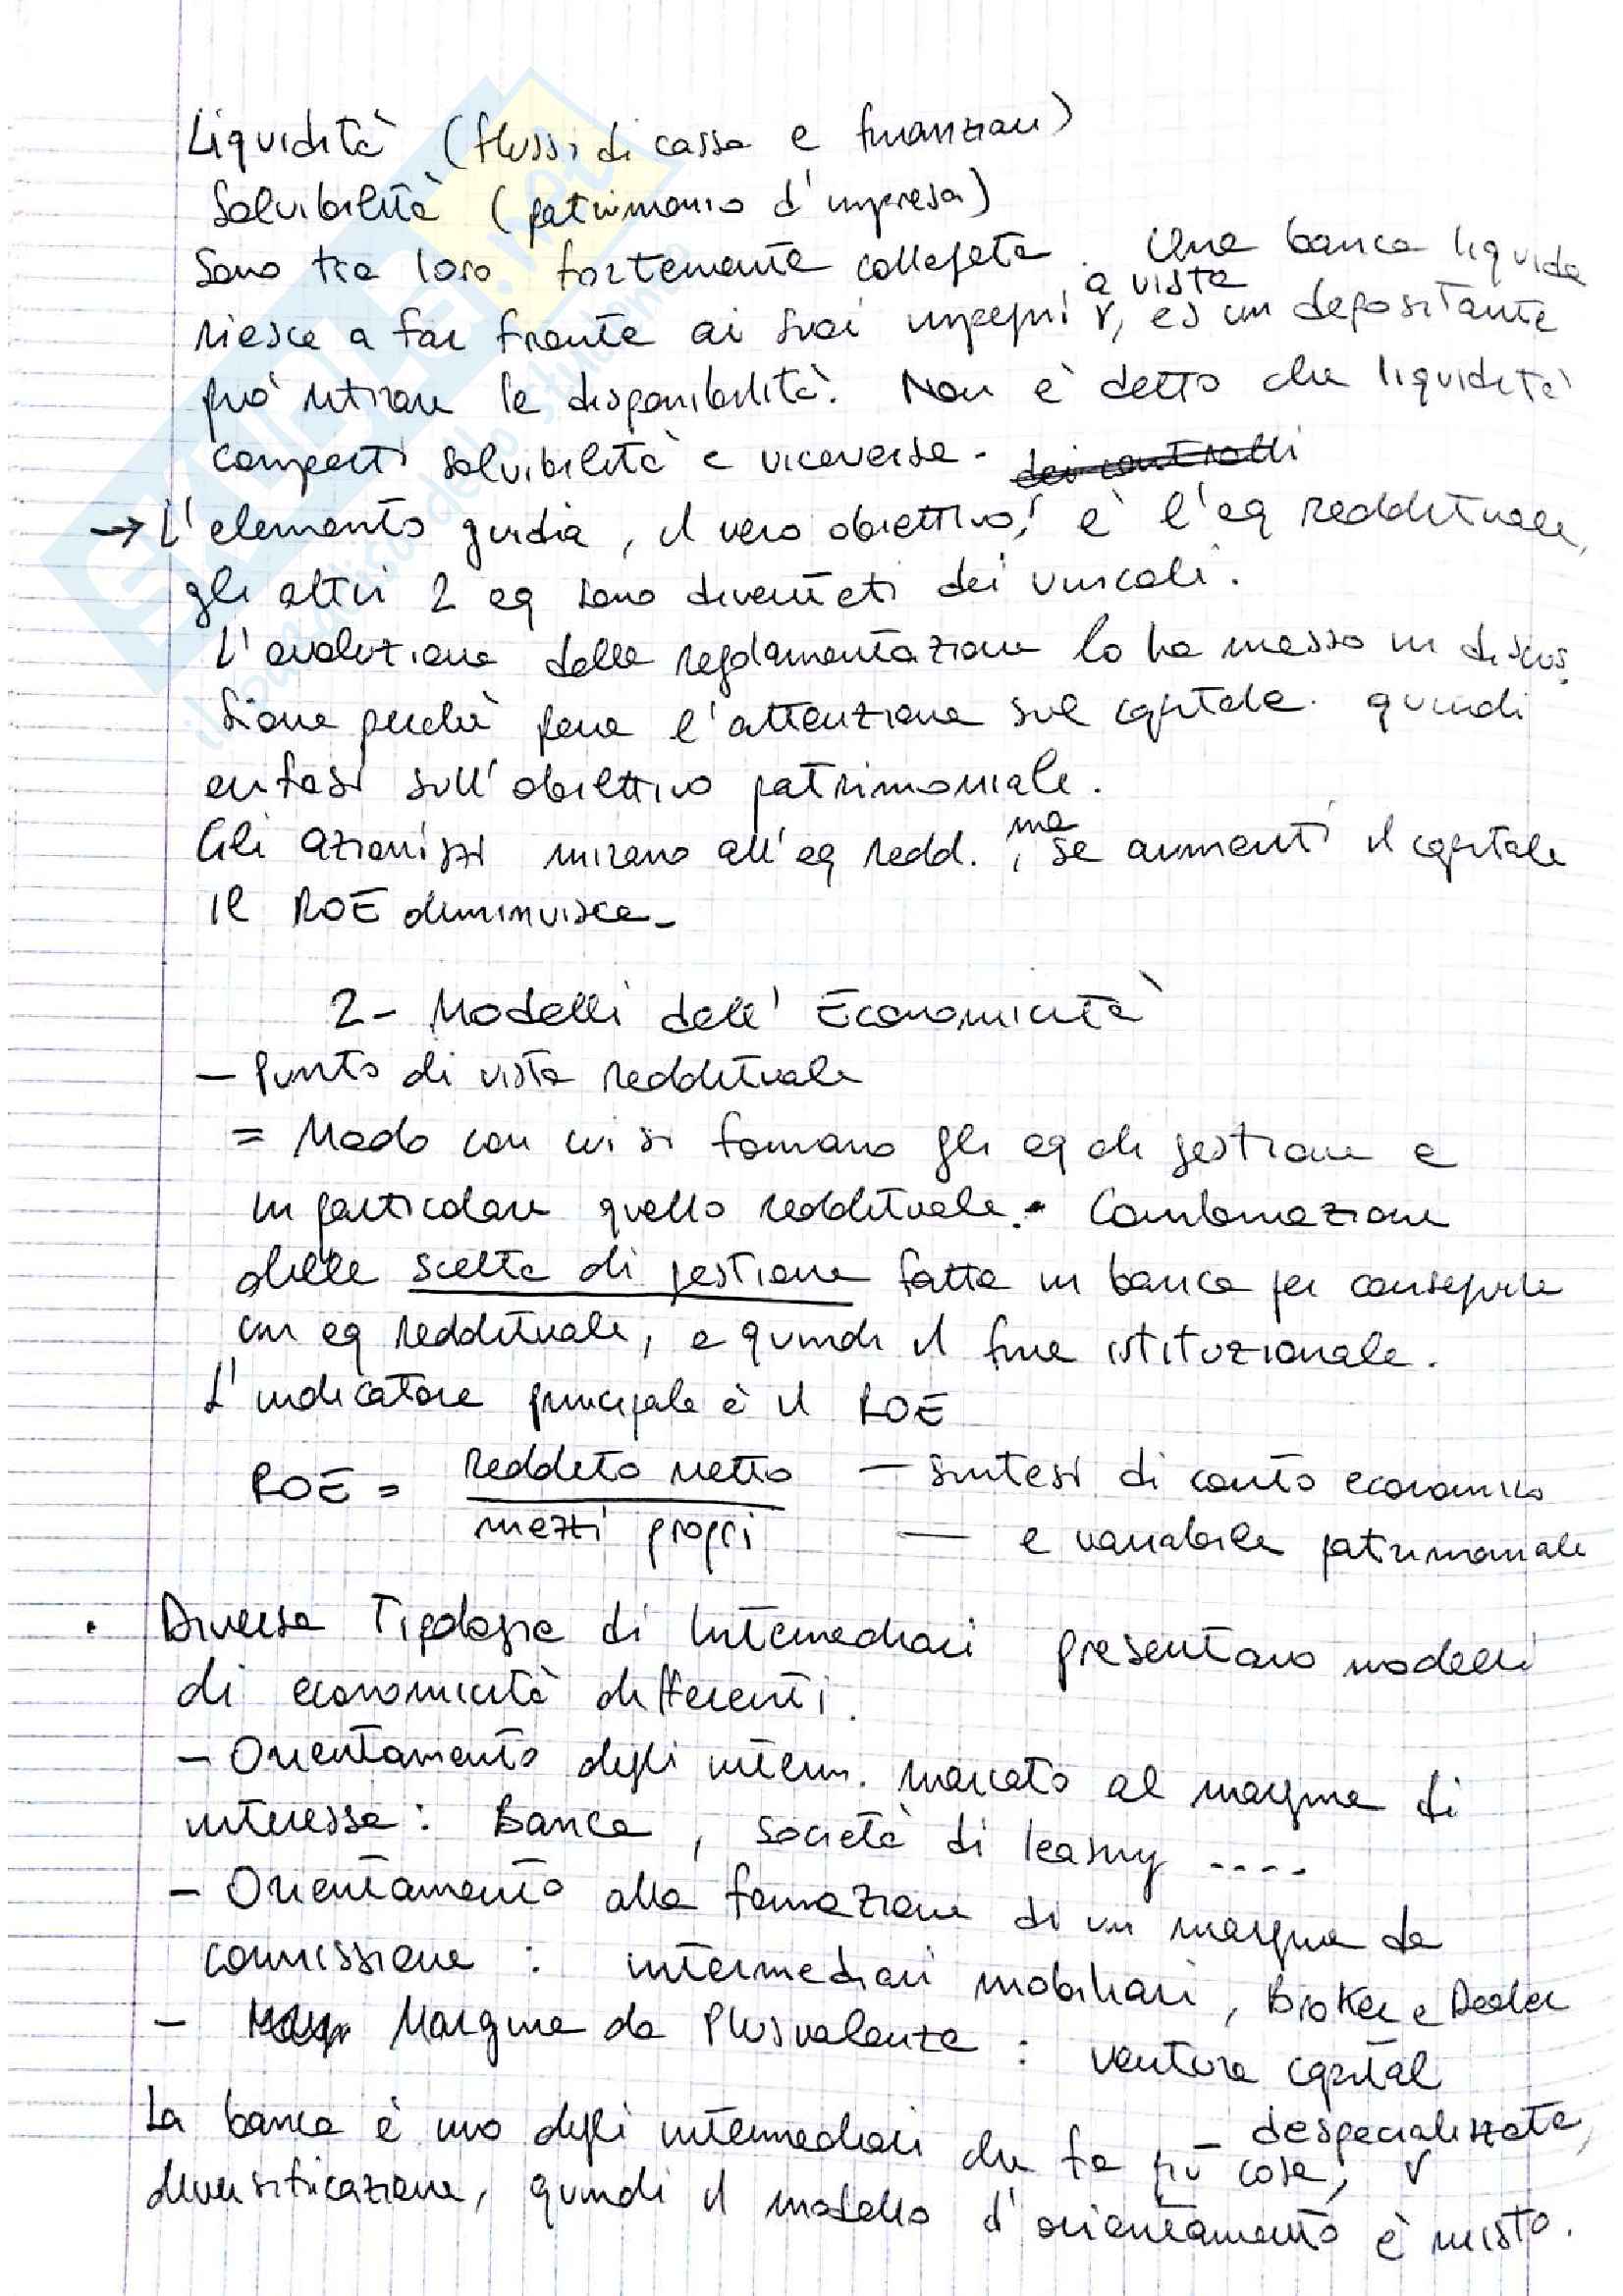 Liquidità (flussi di cassa e finanziari)
Solvibilità (patrimonio d'impresa)
Sono tra loro fortemente collegate. Una banca liquida
riesce a far fronte ai suoi impegni a vista, es un depositante
può ritirare le disponibilità. Non è detto che liquidità
comporti solvibilità e viceversa. dei controlli
→ L'elemento guida, il vero obiettivo, è l'eq reddituale,
gli altri 2 eq sono diventati dei vincoli.
L'evoluzione della regolamentazione lo ha messo in discus
sione perchè pone l'attenzione sul capitale. quindi
enfasi sull'obiettivo patrimoniale.
Gli azionisti mirano all'eq redd., ma se aumenti il capitale
il ROE diminuisce-
2- Modelli dell'Economicità
- Punto di vista reddituale
= Modo con cui si formano gli eq di gestione e
in particolare quello reddituale. Combinazione
delle scelte di gestione fatte in banca per conseguire
un eq reddituale, e quindi il fine istituzionale.
L'indicatore principale è il ROE
ROE = reddito netto — sintesi di conto economico
mezzi propri — e variabile patrimoniale
. Diverse Tipologie di Intermediari presentano modelli
di economicità differenti.
- Orientamento degli interm. marcato al margine di
interesse: Banca, società di leasing ....
- Orientamento alla formazione di un margine da
commissione : intermediari mobiliari, Broker e Dealer
- Margine da Plusvalenze : venture capital
La banca è uno degli intermediari che fa più cose, - despecializzata,
diversificazione, quindi il modello d'orientamento è misto.
SKUOLA.net
il paradiso dello studente